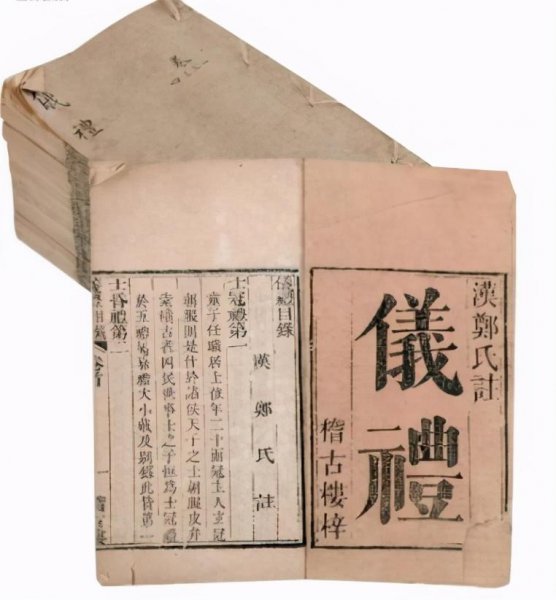 儀禮
漢鄭氏註
儀禮
稽古樓梓
儀禮目錄
漢鄭氏註
士冠禮第一
童子任職居士位年二十而冠主人玄冠
朝服則是仕於諸侯天子之士朝服皮弁
素積古者四民世事士之子恒為士冠禮
於五禮屬嘉禮大小戴及別錄此皆第一
士昏禮第二